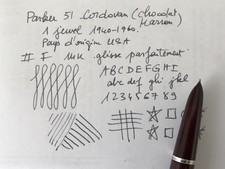 Parker 51 Cordovan (chocolat, Marron)
1 jewel 1940-1960.
Pays d'origine USA
# F. glisse parfaitement
A B C D E F G H I
abc def ghi jkl
1 2 3 4 5 6 7 8 9